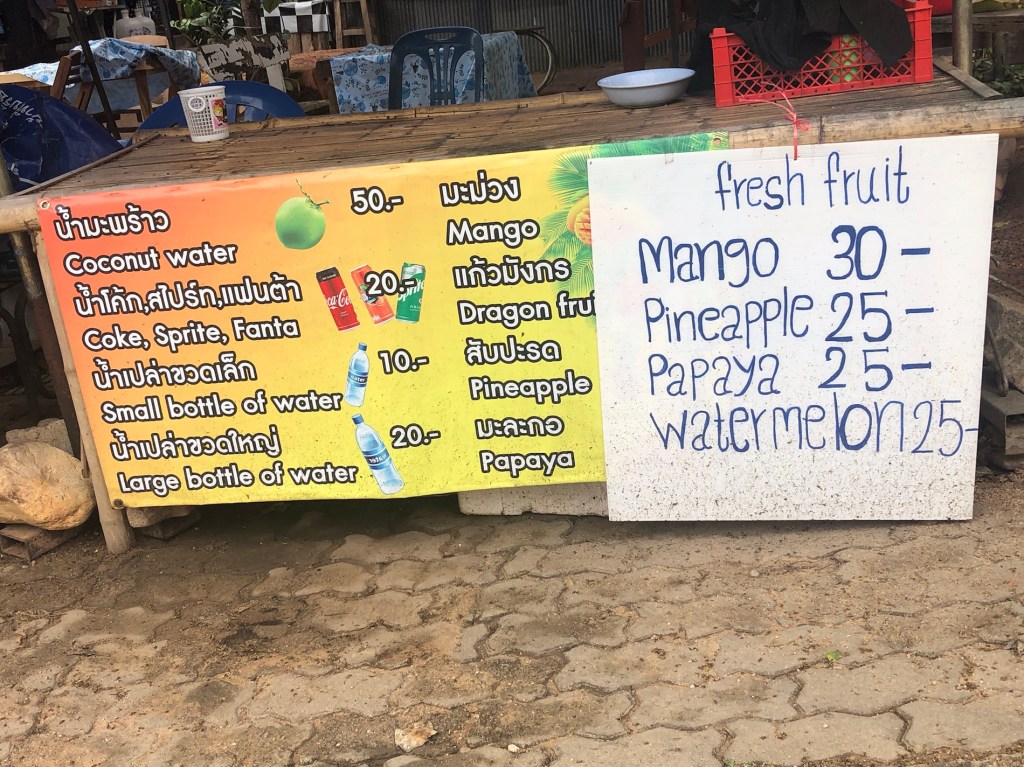 น้ำมะพร้าว 50.-
Coconut water
น้ำโค้ก,สไปร์ท,แฟนต้า 20.-
Coke, Sprite, Fanta
น้ำเปล่าขวดเล็ก 10.-
Small bottle of water
น้ำเปล่าขวดใหญ่ 20.-
Large bottle of water
มะม่วง
Mango
แก้วมังกร
Dragon frui
สับปะรด
Pineapple
มะละกอ
Papaya
fresh fruit
Mango 30-
Pineapple 25-
Papaya 25-
Watermelon 25-